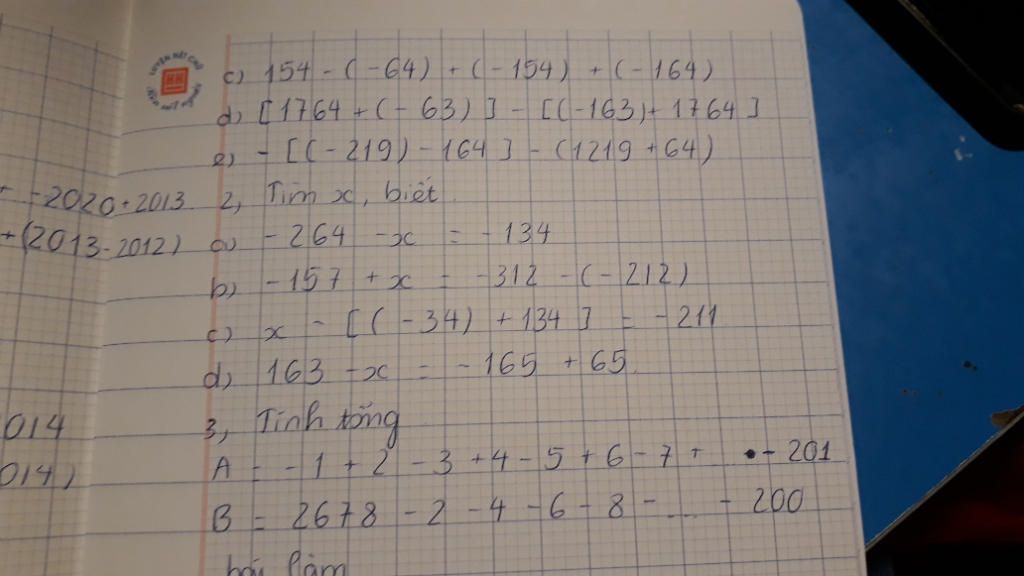 c) 154 - (-64) + (-154) + (-164)
d) [1764 + (-63)] - [(-163) + 1764]
e) - [(-219) - 164] - (1219 + 64)
-2020+2013
2, Tìm x, biết
+(2013-2012)
a) -264 - x = -134
b) -157 + x = -312 - (-212)
c) x - [(-34) + 134] = -211
d) 163 - x = -165 + 65
3, Tính tổng
014
A = -1 + 2 - 3 + 4 - 5 + 6 - 7 + . - 201
014)
B = 2678 - 2 - 4 - 6 - 8 - .... - 200
bài làm